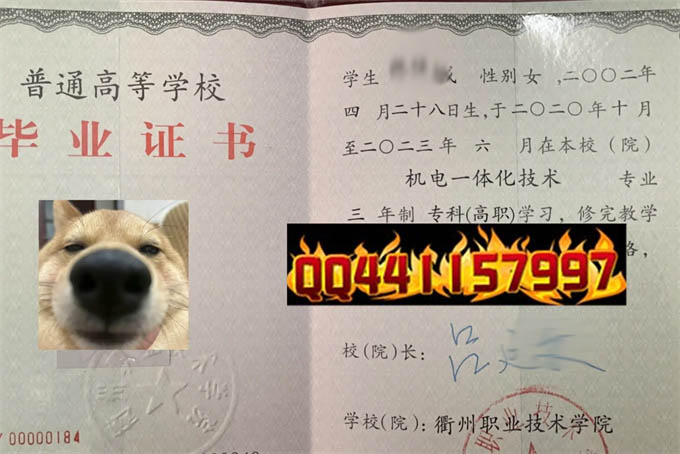 普通高等学校
毕业证书
Y 00000184
学生 性别 女 ,二〇〇二年
四 月二十八日生,于二〇二〇年十月
至二〇二三年 六 月在本校(院)
机电一体化技术 专业
三 年制 专科(高职)学习, 修完教学
格,
QQ441157997
校(院)长:
学校(院):衢州职业技术学院